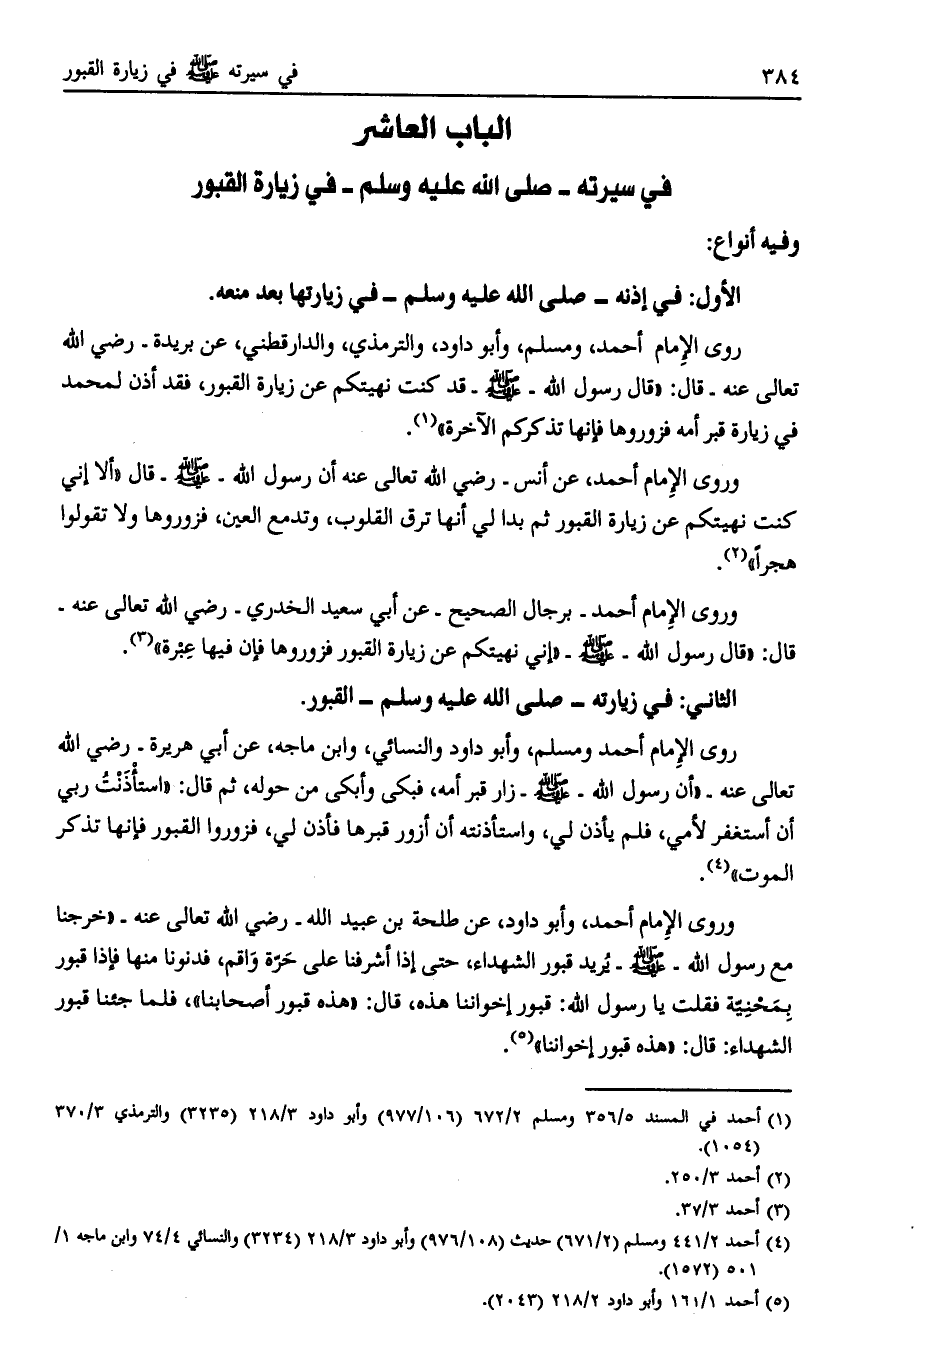 ٣٨٤ في سيرته ﷺ في زيارة القبور
الباب العاشر
في سيرته ـ صلى الله عليه وسلم ـ في زيارة القبور
وفيه أنواع:
الأول: في إذنه ـ صلى الله عليه وسلم ـ في زيارتها بعد منعه.
روى الإمام أحمد، ومسلم، وأبو داود، والترمذي، والدارقطني، عن بريدة ـ رضي الله
تعالى عنه ـ قال: «قال رسول الله ـ ﷺ ـ قد كنت نهيتكم عن زيارة القبور، فقد أذن لمحمد
في زيارة قبر أمه فزوروها فإنها تذكركم الآخرة»(١).
وروى الإمام أحمد، عن أنس ـ رضي الله تعالى عنه أن رسول الله ـ ﷺ ـ قال «ألا إني
كنت نهيتكم عن زيارة القبور ثم بدا لي أنها ترق القلوب، وتدمع العين، فزوروها ولا تقولوا
هجراً»(٢).
وروى الإمام أحمد ـ برجال الصحيح ـ عن أبي سعيد الخدري ـ رضي الله تعالى عنه ـ
قال: «قال رسول الله ـ ﷺ ـ «إني نهيتكم عن زيارة القبور فزوروها فإن فيها عِبْرة»(٣).
الثاني: في زيارته ـ صلى الله عليه وسلم ـ القبور.
روى الإمام أحمد ومسلم، وأبو داود والنسائي، وابن ماجه، عن أبي هريرة ـ رضي الله
تعالى عنه ـ «أن رسول الله ـ ﷺ ـ زار قبر أمه، فبكى وأبكى من حوله، ثم قال: «استأْذَنْتُ ربي
أن أستغفر لأمي، فلم يأذن لي، واستأذنته أن أزور قبرها فأذن لي، فزوروا القبور فإنها تذكر
الموت»(٤).
وروى الإمام أحمد، وأبو داود، عن طلحة بن عبيد الله ـ رضي الله تعالى عنه ـ «خرجنا
مع رسول الله ـ ﷺ ـ يُريد قبور الشهداء، حتى إذا أشرفنا على حَرّة وَاقم، فدنونا منها فإذا قبور
بِمَحْنِيّة فقلت يا رسول الله: قبور إخواننا هذه، قال: «هذه قبور أصحابنا»، فلما جئنا قبور
الشهداء: قال: «هذه قبور إخواننا»(٥).
(١) أحمد في المسند ٣٥٦/٥ ومسلم ٦٧٢/٢ (٩٧٧/١٠٦) وأبو داود ٢١٨/٣ (٣٢٣٥) والترمذي ٣٧٠/٣
(١٠٥٤).
(٢) أحمد ٢٥٠/٣.
(٣) أحمد ٣٧/٣.
(٤) أحمد ٤٤١/٢ ومسلم (٦٧١/٢) حديث (٩٧٦/١٠٨) وأبو داود ٢١٨/٣ (٣٢٣٤) والنسائي ٧٤/٤ وابن ماجه ١/
٥٠١ (١٥٧٢).
(٥) أحمد ١٦١/١ وأبو داود ٢١٨/٢ (٢٠٤٣).